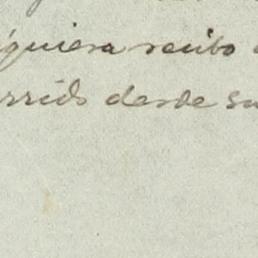 iquiera recibo
rrido desde su